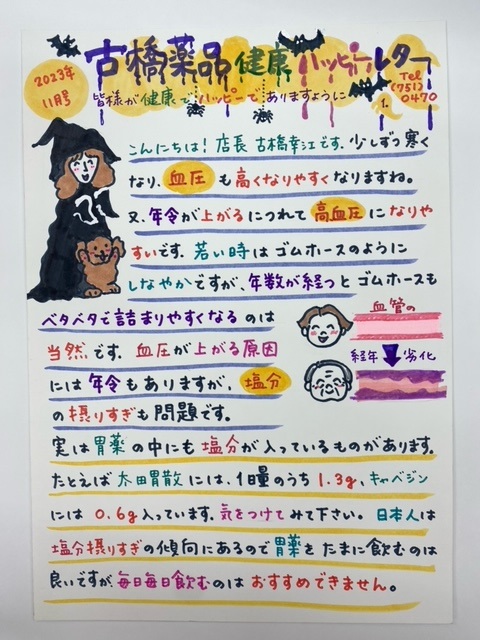 2023年
11月号
古橋薬品 健康 ハッピーレター
皆様が健康でハッピーでありますように
Tel
(751)
0470
1.
こんにちは！店長 古橋幸江です。少しずつ寒く
なり、血圧も高くなりやすくなりますね。
又、年令が上がるにつれて高血圧になりや
すいです。若い時はゴムホースのように
しなやかですが、年数が経つとゴムホースも
ベタベタで詰まりやすくなるのは
当然です。血圧が上がる原因
には年令もありますが、塩分
の摂りすぎも問題です。
血管の
経年 劣化
実は胃薬の中にも塩分が入っているものがあります。
たとえば太田胃散には、1日量のうち1.3g、キャベジン
には0.6g入っています。気をつけてみて下さい。日本人は
塩分摂りすぎの傾向にあるので胃薬をたまに飲むのは
良いですが毎日毎日飲むのはおすすめできません。